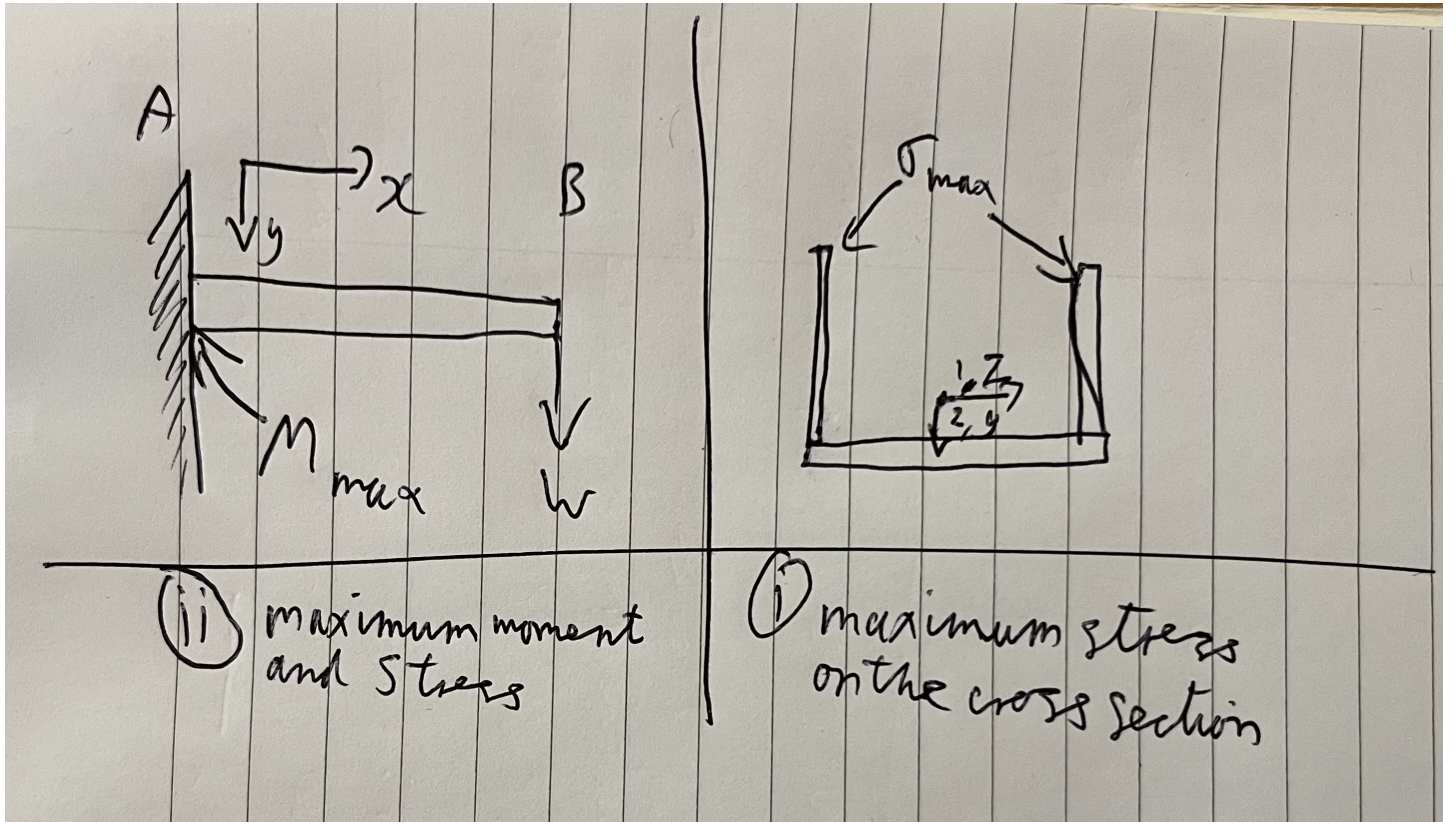 A
x
y
B
M max
W
ii maximum moment
and stress
σ max
1, z
2, y
i maximum stress
on the cross section